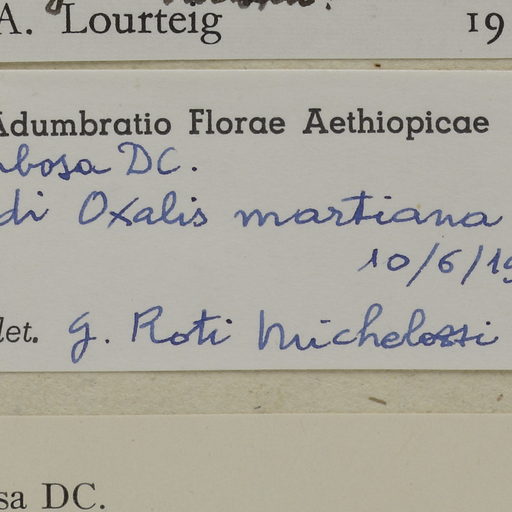 A. Lourteig 19
Adumbratio Florae Aethiopicae
bosa DC.
di Oxalis martiana
10/6/19
det. G. Roti Michelozzi
sa DC.